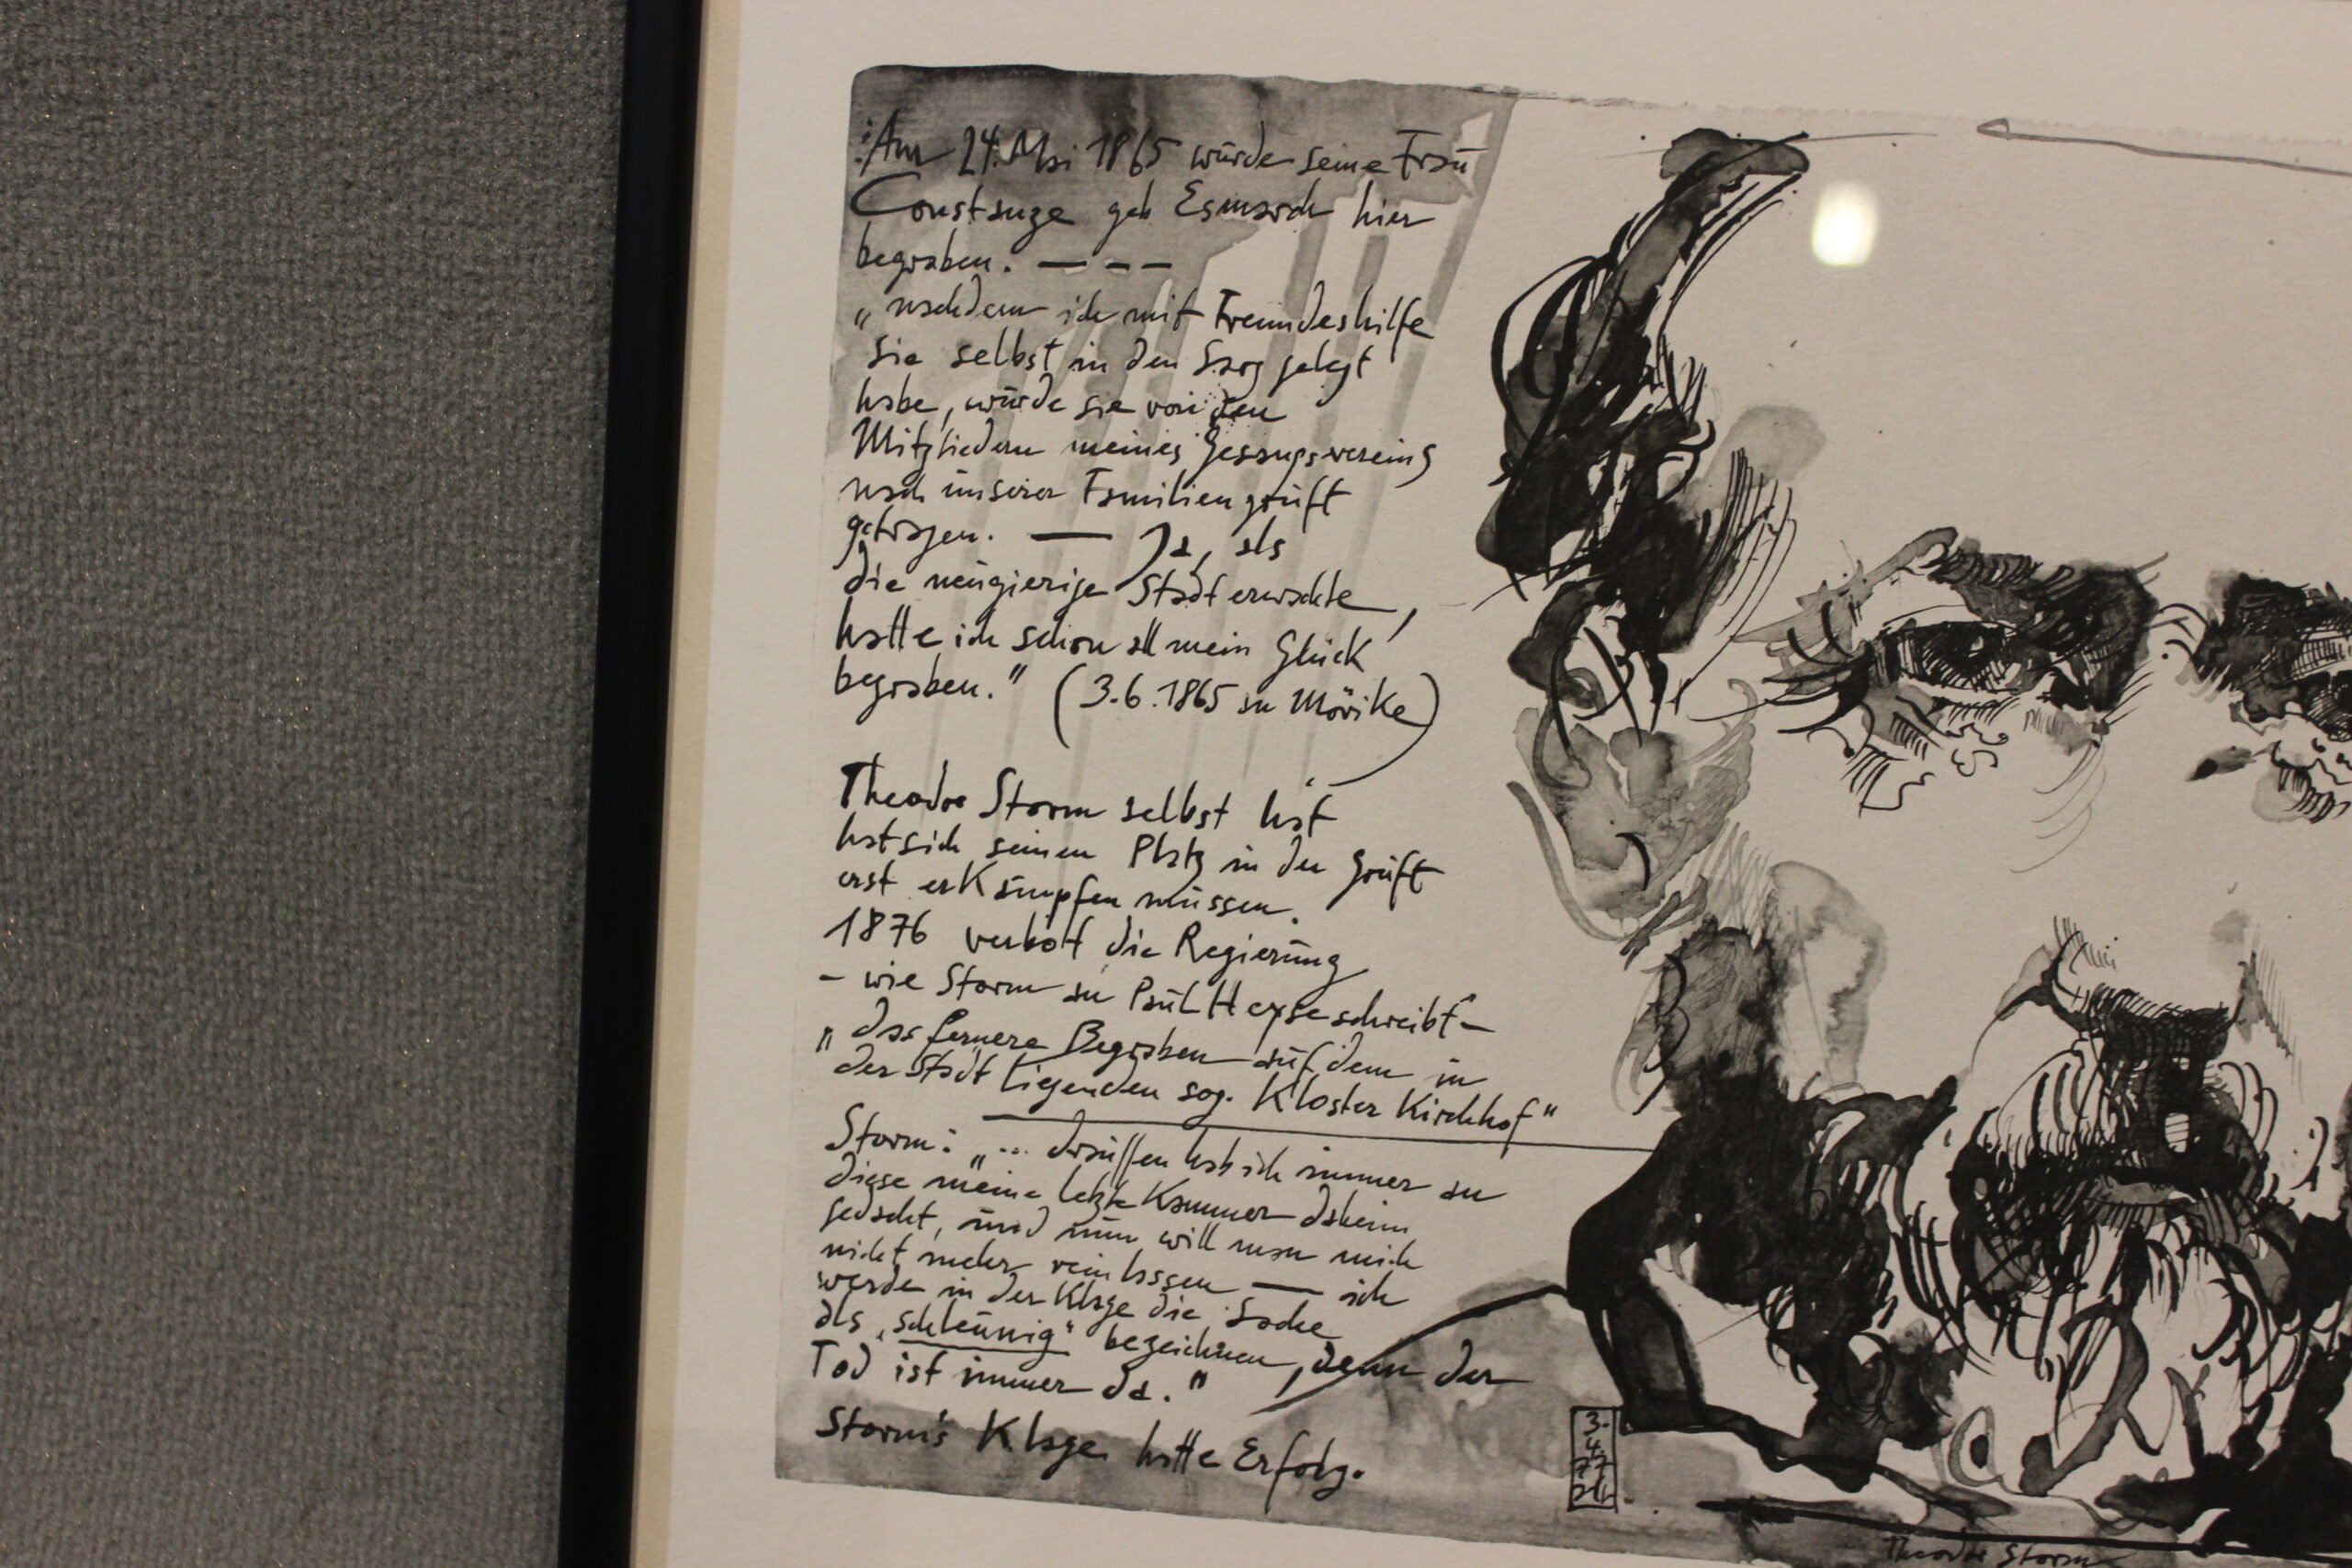 Am 24. Mai 1865 wurde seine Frau
Constanze geb Esmarch hier
begraben. — – –
„nachdem ich mit Freundeshilfe
sie selbst in den Sarg gelegt
habe, wurde sie von den
Mitgliedern meines Gesangsvereins
nach unserer Familiengruft
getragen. — Ja, als
die neugierige Stadt erwachte,
hatte ich schon all mein Glück
begraben." (3.6.1865 an Mörike)
Theodor Storm selbst hat
hat sich seinen Platz in der Gruft
erst erkämpfen müssen.
1876 verbott die Regierung
– wie Storm an Paul Heyse schreibt –
„das fernere Begraben auf dem in
der Stadt liegenden sog. Kloster Kirchhof"
Storm: „... draußen hab ich immer an
diese meine letzte Kammer daheim
gedacht, und nun will man mich
nicht mehr reinlassen — ich
werde in der Klage die Sache
als „schleunig" bezeichnen, denn der
Tod ist immer da."
Storm's Klage hatte Erfolg.
3.
4.
Theodor Storm